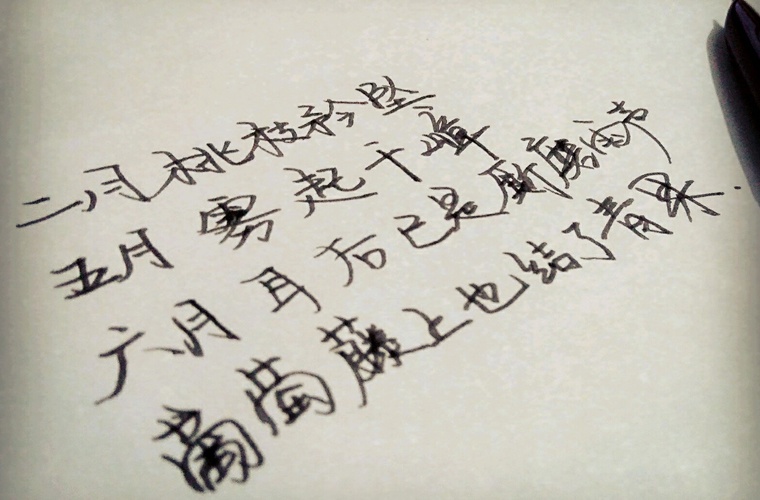 二月桃枝坠
五月雾起千
六月耳后已是
葡萄藤上也结了青果